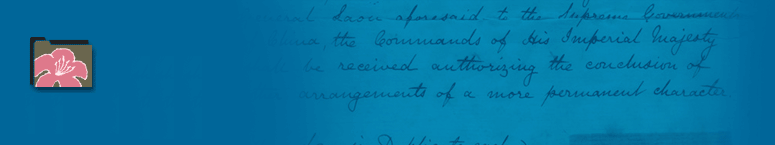 aforesaid to the Supreme Government
the Commands of His Imperial Majesty
be received authorizing the conclusion of
arrangements of a more permanent character
Duplicate and